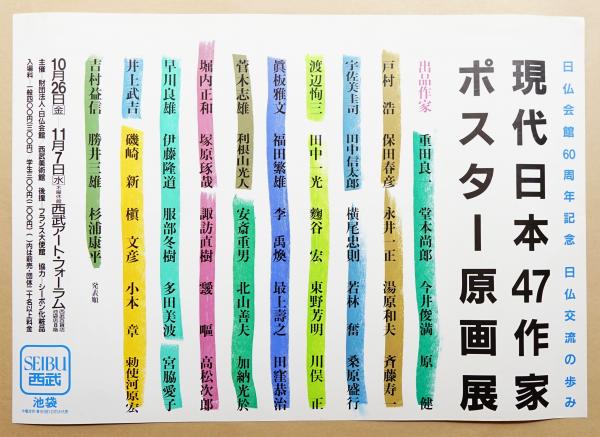 日仏会館60周年記念 日仏交流の歩み
現代日本47作家
ポスター原画展
出品作家
重田良一 堂本尚郎 今井俊満 原 健
戸村 浩 保田春彦 永井一正 湯原和夫 斉藤寿一
宇佐美圭司 田中信太郎 横尾忠則 若林 奮 桑原盛行
渡辺恂三 田中一光 麴谷 宏 東野芳明 川俣 正
眞板雅文 福田繁雄 李 禹煥 最上壽之 田窪恭治
菅木志雄 利根山光人 安斎重男 北山善夫 加納光於
堀内正和 塚原琢哉 諏訪直樹 靉 嘔 高松次郎
早川良雄 伊藤隆道 服部冬樹 多田美波 宮脇愛子
井上武吉 磯崎 新 槇 文彦 小本 章 勅使河原宏
吉村益信 勝井三雄 杉浦康平
発表順
10月26日(金) 11月7日(水) 木曜定休 西武アート・フォーラム
主催 財団法人・日仏会館 西武美術館 後援・フランス大使館 協力・シーボン化粧品
入場料 一般四〇〇円(三〇〇円) 学生三〇〇円(二〇〇円) ( )内は前売・団体二十名以上料金
SEIBU
西武
池袋